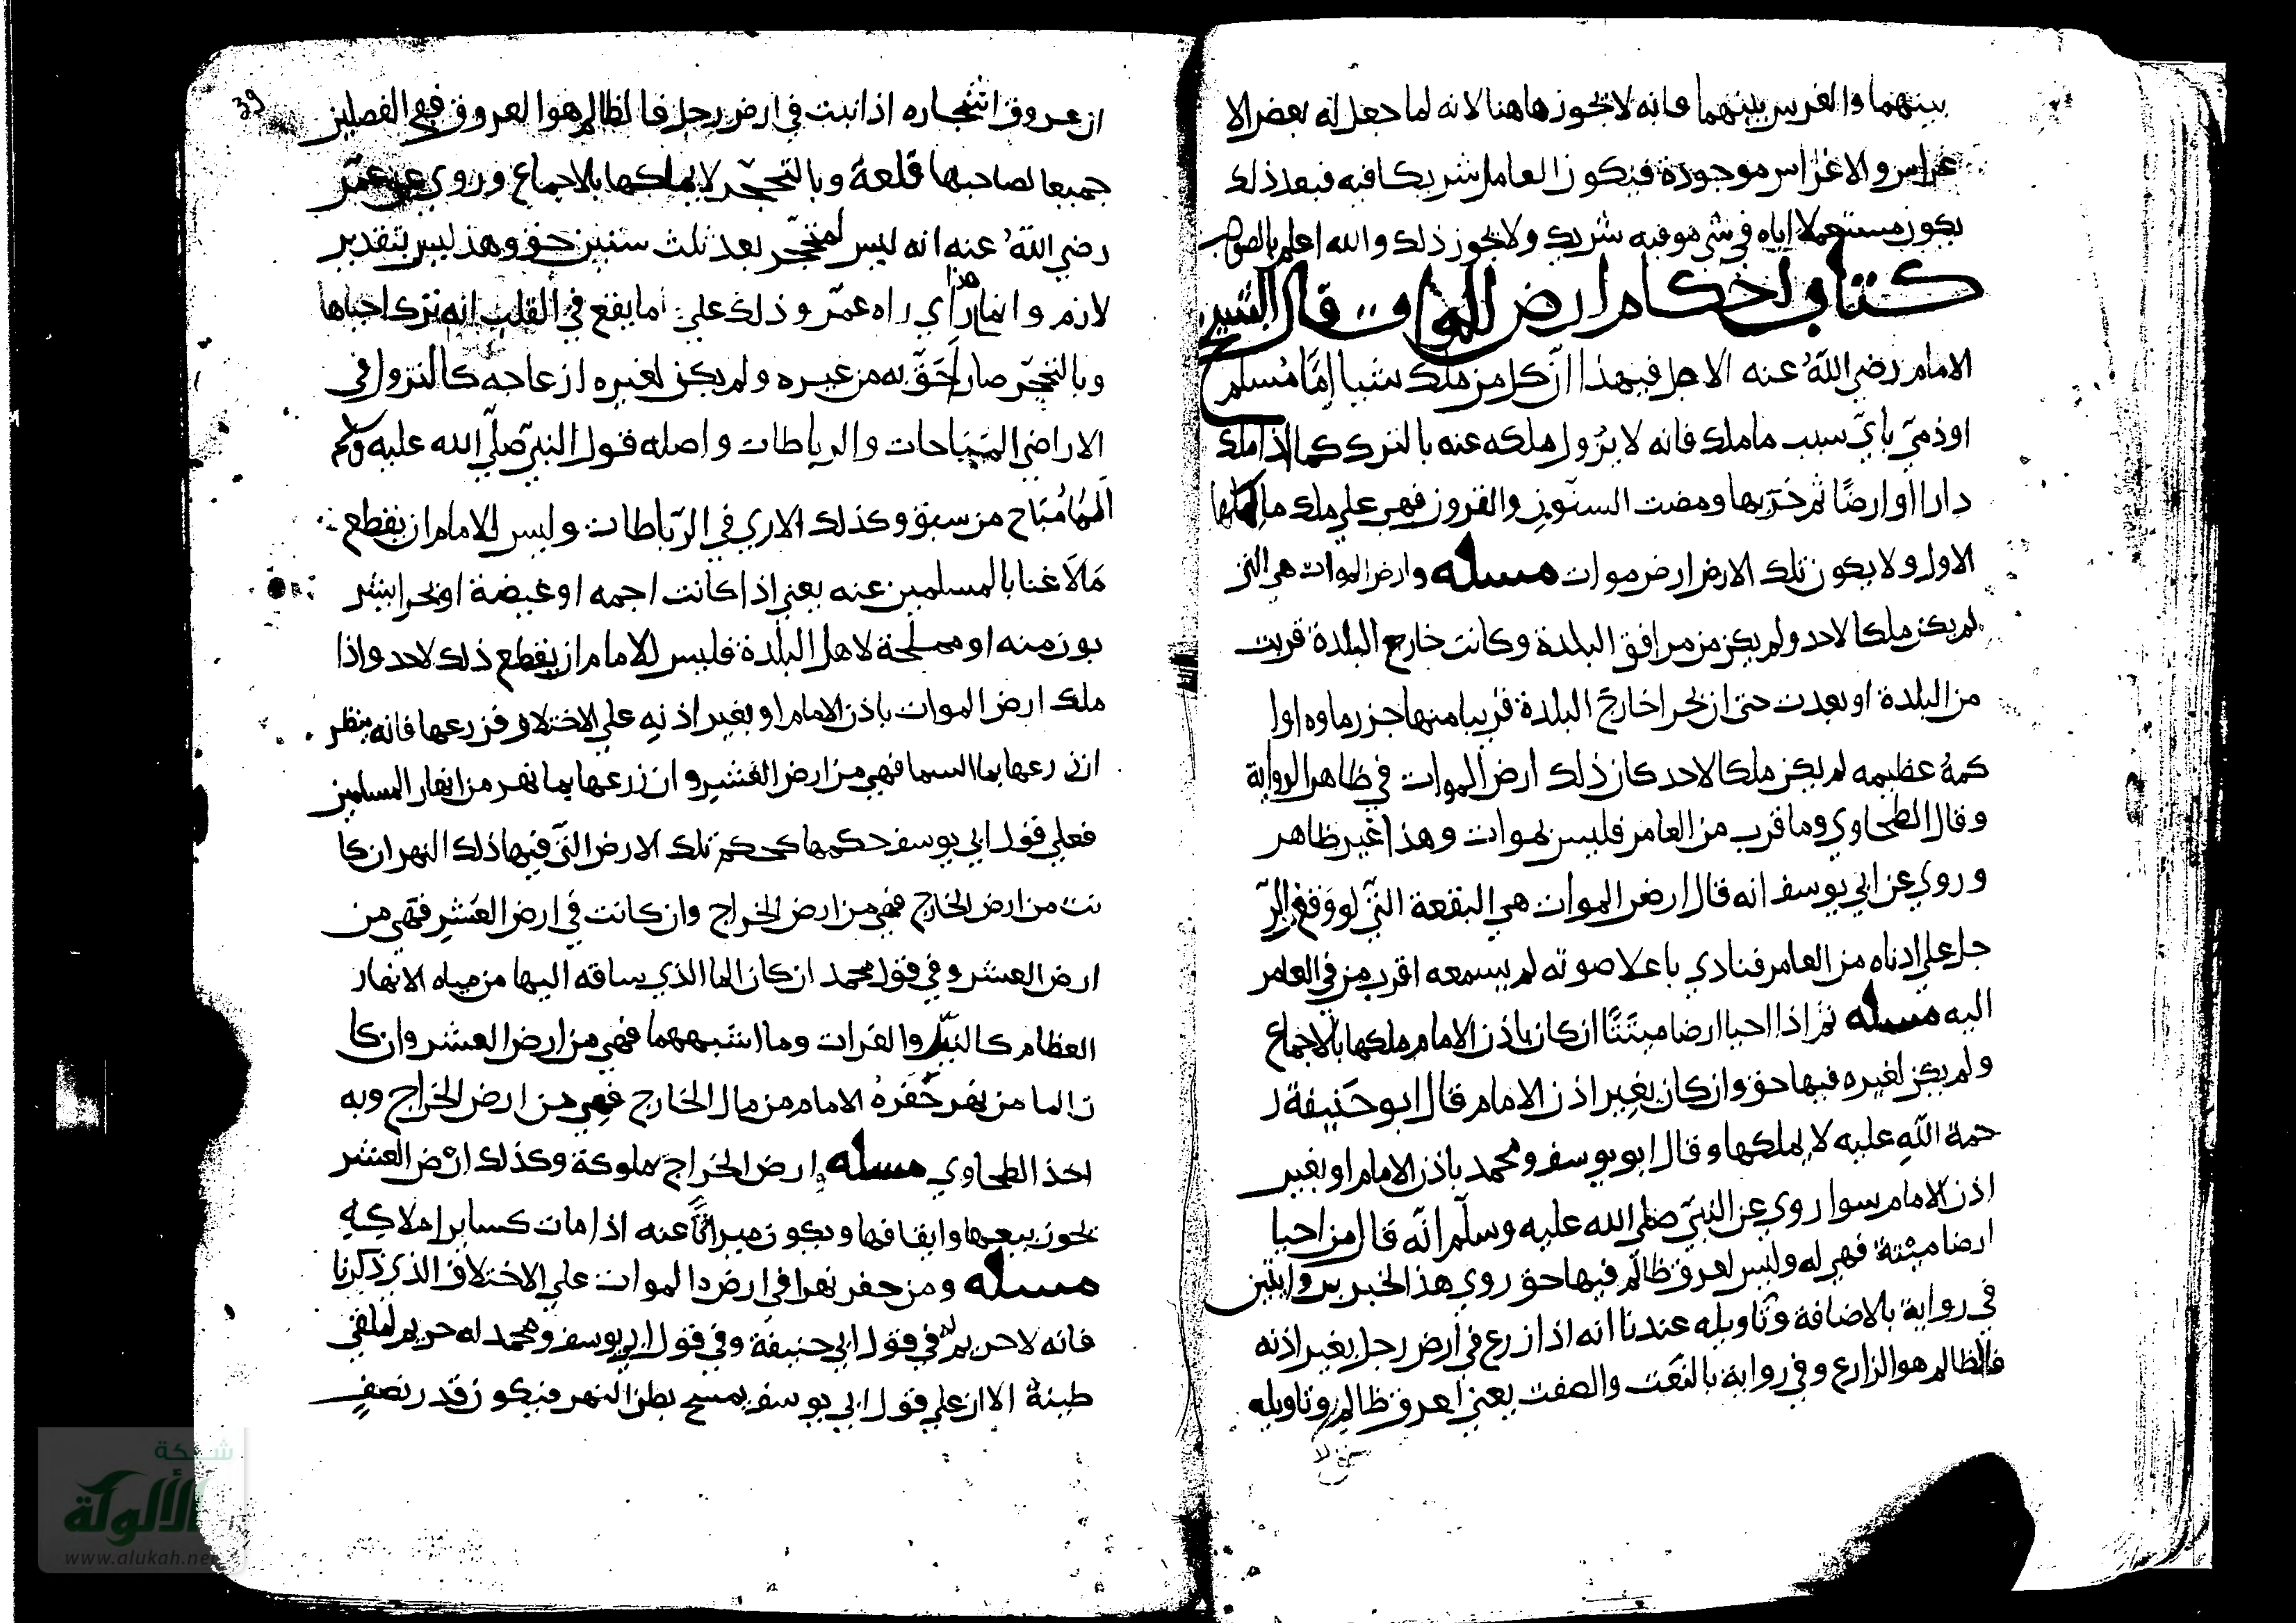 بينهما والغرس بينهما فانه لا يجوز هاهنا لانه لما جعل له بعض الا
غراس والاغراس موجودة فيكون العامل شريكا فيه فبعد ذلك
يكون مستعملا اياه في شي هو فيه شريك ولا يجوز ذلك والله اعلم بالصواب
كتاب احكام ارض الموات قال الشيخ
الامام رضي الله عنه الاصل في هذا ان كل من ملك شيا اما مسلم
او ذمي باي سبب ما ملك فانه لا يزول ملكه عنه بالترك كما اذا ملك
دارا او ارضا ثم خربها ومضت السنون والقرون فهي علي ملك مالكها
الاول ولا يكون تلك الارض ارض موات مسله وارض الموات هي التي
لم يكن ملكا لاحد ولم يكن من مرافق البلدة وكانت خارج البلدة قربت
من البلدة او بعدت حتي ان بحرا خارج البلدة قريبا منها جزر ماوه او ا
كمة عظيمه لم يكن ملكا لاحد كان ذلك ارض الموات في ظاهر الرواية
وقال الطحاوي وما قرب من العامر فليس بموات وهذا غير ظاهر
وروي عن ابي يوسف انه قال ارض الموات هي البقعة التي لو وقف الر
جل علي ادناه من العامر فنادي باعلا صوته لم يسمعه اقرب من في العامر
اليه مسله ثم اذا احيا ارضا ميتتا ان كان باذن الامام ملكها بالاجماع
ولم يكن لغيره فيها حق وان كان بغير اذن الامام قال ابو حنيفة ر
حمة الله عليه لا يملكها وقال ابو يوسف ومحمد باذن الامام او بغير
اذن الامام سوا روي عن النبي صلي الله عليه وسلم انه قال من احيا
ارضا ميتة فهي له وليس لعرق ظالم فيها حق روي هذا الخبر بروايتين
في رواية بالاضافة وتاويله عندنا انه اذا زرع في ارض رجل بغير اذنه
فالظالم هو الزارع وفي رواية بالنعت والصفت يعني لعرق ظالم وتاويله
39
ان عروق اشجاره اذا نبت في ارض رجل فالظالم هو العروق ففي الفصلين
جميعا لصاحبها قلعة وبالتحجر لا يملكها بالاجماع وروي عن عمر
رضي الله عنه انه ليس لمتحجر بعد ثلث سنين حق وهذ ليس بتقدير
لازم وانما هذا راي راه عمر وذلك علي ما يقع في القلب انه ترك احياها
وبالتحجر صار احق به من غيره ولم يكن لغيره ازعاجه كالنزول في
الاراضي المباحات والرباطات واصله قول النبي صلي الله عليه وسلم
المنا مباح من سبق وكذلك الاري في الرباطات وليس للامام ان يقطع
مالا غنا بالمسلمين عنه يعني اذا كانت اجمه او غيضة او بحرا يشر
بون منه او مملحة لاهل البلدة فليس للامام ان يقطع ذلك لاحد واذا
ملك ارض الموات باذن الامام او بغير اذنه علي الاختلاف فزرعها فانه ينظر
ان زرعها بما السما فهي من ارض العشر وان زرعها بما نهر من انهار المسلمين
فعلي قول ابي يوسف حكمها كحكم تلك الارض التي فيها ذلك النهر ان كا
نت من ارض الخارج فهي من ارض الخراج وان كانت في ارض العشر فهي من
ارض العشر وفي قول محمد ان كان الما الذي ساقه اليها من مياه الانهار
العظام كالنيل والفرات وما اشبههما فهي من ارض العشر وان كا
ن الما من نهر حفره الامام من مال الخارج فهي من ارض الخراج وبه
اخذ الطحاوي مسله ارض الخراج مملوكة وكذلك ارض العشر
يجوز بيعها وايقافها ويكون ميراثا عنه اذا مات كساير املاكه
مسله ومن حفر نهرا في ارض دالموات علي الاختلاف الذي ذكرنا
فانه لا حريم له في قول ابي حنيفة وفي قول ابي يوسف ومحمد له حريم لملقي
طينة الا ان علي قول ابي يوسف يمسح بطن النهر فيكون قدر نصف
شبكة
الألوكة
www.alukah.net